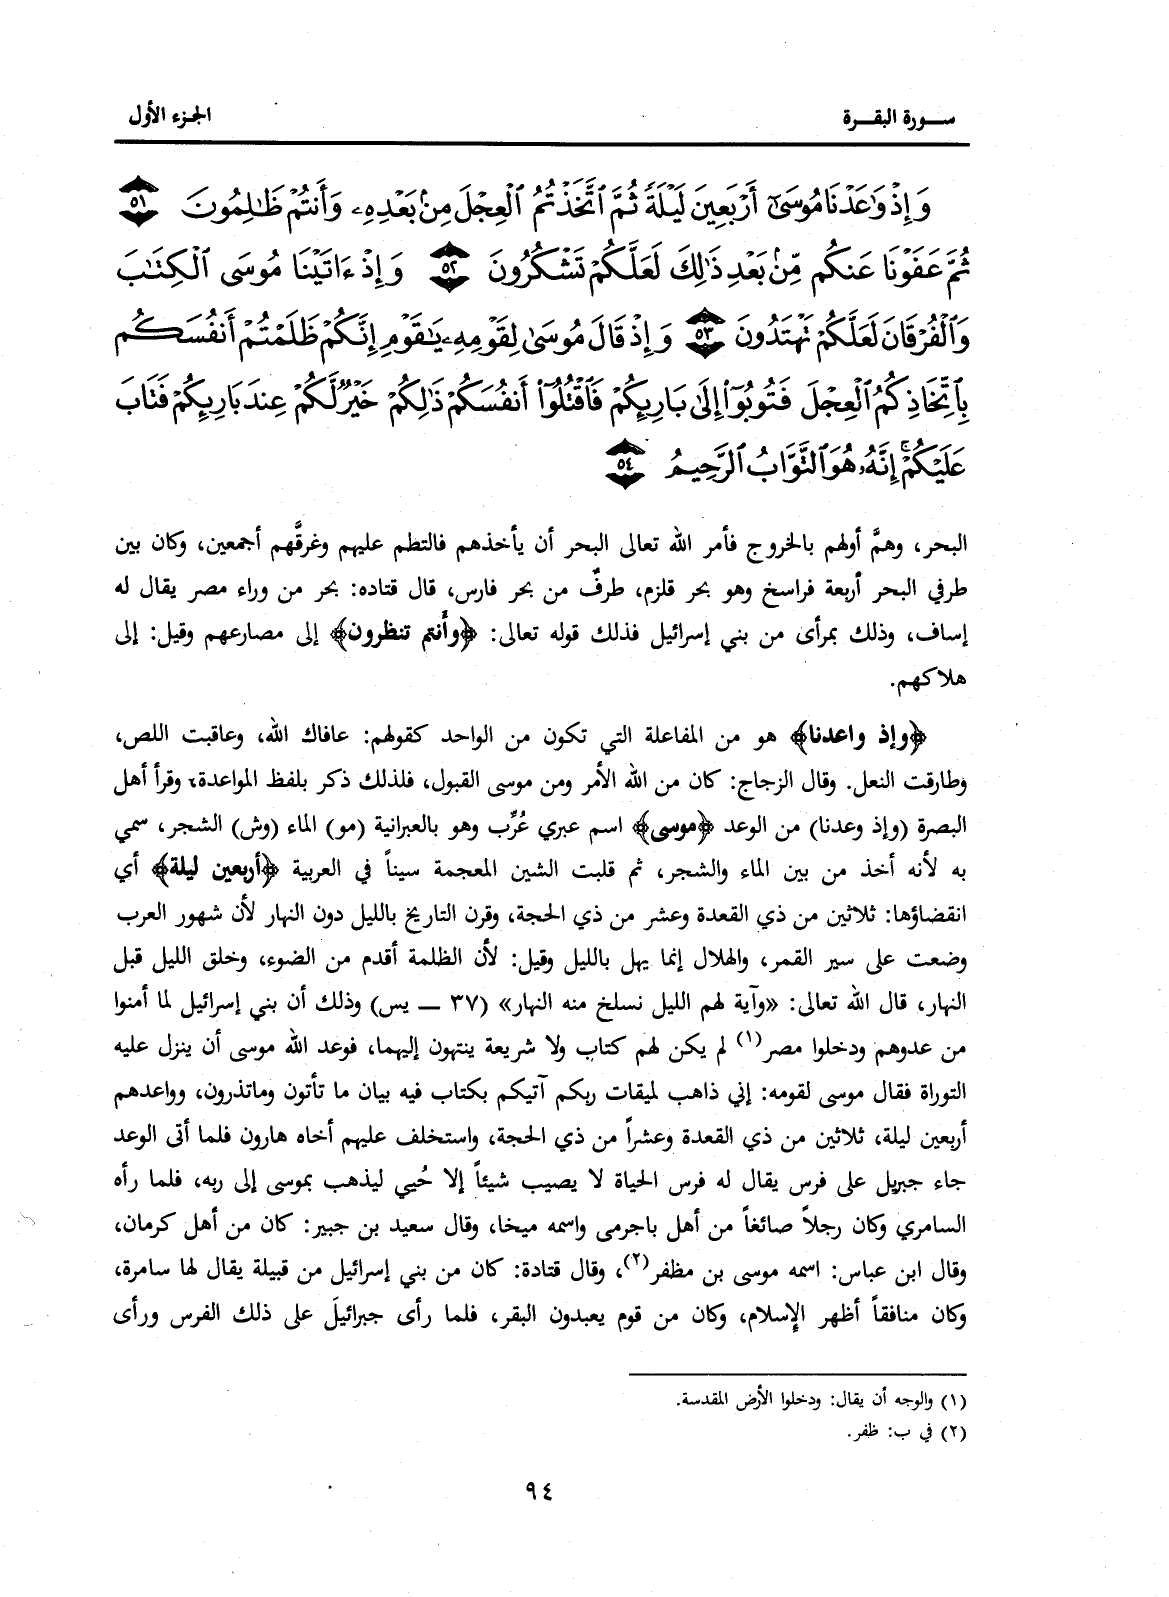 سورة البقرة
الجزء الأول
وَإِذْ وَٰعَدْنَا مُوسَىٰٓ أَرْبَعِينَ لَيْلَةً ثُمَّ ٱتَّخَذْتُمُ ٱلْعِجْلَ مِنۢ بَعْدِهِۦ وَأَنتُمْ ظَٰلِمُونَ ٥١
ثُمَّ عَفَوْنَا عَنكُم مِّنۢ بَعْدِ ذَٰلِكَ لَعَلَّكُمْ تَشْكُرُونَ ٥٢ وَإِذْ ءَاتَيْنَا مُوسَى ٱلْكِتَٰبَ
وَٱلْفُرْقَانَ لَعَلَّكُمْ تَهْتَدُونَ ٥٣ وَإِذْ قَالَ مُوسَىٰ لِقَوْمِهِۦ يَٰقَوْمِ إِنَّكُمْ ظَلَمْتُمْ أَنفُسَكُم
بِٱتِّخَاذِكُمُ ٱلْعِجْلَ فَتُوبُوٓا۟ إِلَىٰ بَارِئِكُمْ فَٱقْتُلُوٓا۟ أَنفُسَكُمْ ذَٰلِكُمْ خَيْرٌ لَّكُمْ عِندَ بَارِئِكُمْ فَتَابَ
عَلَيْكُمْ ۚ إِنَّهُۥ هُوَ ٱلتَّوَّابُ ٱلرَّحِيمُ ٥٤
البحر، وهمَّ أولهم بالخروج فأمر الله تعالى البحر أن يأخذهم فالتطم عليهم وغرقَّهم أجمعين، وكان بين
طرفي البحر أربعة فراسخ وهو بحر قلزم، طرفٌ من بحر فارس، قال قتاده: بحر من وراء مصر يقال له
إساف، وذلك بمرأى من بني إسرائيل فذلك قوله تعالى: ﴿وأنتم تنظرون﴾ إلى مصارعهم وقيل: إلى
هلاكهم.
﴿وإذ واعدنا﴾ هو من المفاعلة التي تكون من الواحد كقولهم: عافاك الله، وعاقبت اللص،
وطارقت النعل. وقال الزجاج: كان من الله الأمر ومن موسى القبول، فلذلك ذكر بلفظ المواعدة، وقرأ أهل
البصرة (وإذ وعدنا) من الوعد ﴿موسى﴾ اسم عبري عُرِّب وهو بالعبرانية (مو) الماء (وش) الشجر، سمي
به لأنه أخذ من بين الماء والشجر، ثم قلبت الشين المعجمة سيناً في العربية ﴿أربعين ليلة﴾ أي
انقضاؤها: ثلاثين من ذي القعدة وعشر من ذي الحجة، وقرن التاريخ بالليل دون النهار لأن شهور العرب
وضعت على سير القمر، والهلال إنما يهل بالليل وقيل: لأن الظلمة أقدم من الضوء، وخلق الليل قبل
النهار، قال الله تعالى: «وآية لهم الليل نسلخ منه النهار» (٣٧ ــ يس) وذلك أن بني إسرائيل لما أمنوا
من عدوهم ودخلوا مصر(١) لم يكن لهم كتاب ولا شريعة ينتهون إليهما، فوعد الله موسى أن ينزل عليه
التوراة فقال موسى لقومه: إني ذاهب لميقات ربكم آتيكم بكتاب فيه بيان ما تأتون وماتذرون، وواعدهم
أربعين ليلة، ثلاثين من ذي القعدة وعشراً من ذي الحجة، واستخلف عليهم أخاه هارون فلما أتى الوعد
جاء جبريل على فرس يقال له فرس الحياة لا يصيب شيئاً إلا حُيي ليذهب بموسى إلى ربه، فلما رأه
السامري وكان رجلاً صائغاً من أهل باجرمى واسمه ميخا، وقال سعيد بن جبير: كان من أهل كرمان،
وقال ابن عباس: اسمه موسى بن مظفر(٢)، وقال قتادة: كان من بني إسرائيل من قبيلة يقال لها سامرة،
وكان منافقاً أظهر الإسلام، وكان من قوم يعبدون البقر، فلما رأى جبرائيلَ على ذلك الفرس ورأى
(١) والوجه أن يقال: ودخلوا الأرض المقدسة.
(٢) في ب: ظفر.
٩٤